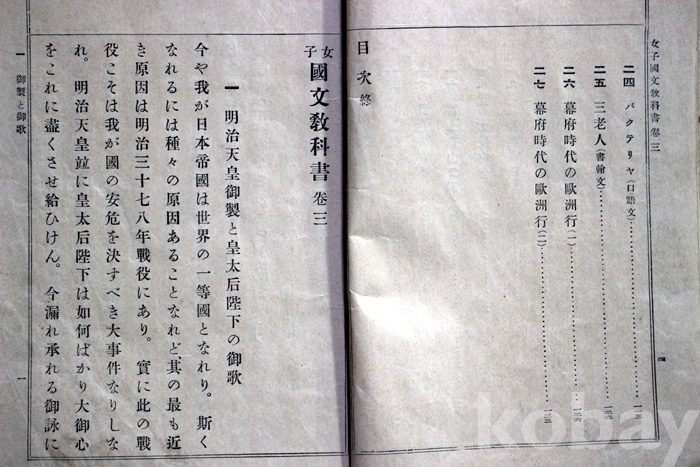 女子國文教科書卷三
二四 バクテリヤ(口語文)
二五 三老人(書翰文)
二六 幕府時代の歐洲行(一)
二七 幕府時代の歐洲行(二)
目次 終
四
女子國文教科書 卷三
一 明治天皇御製と皇太后陛下の御歌
今や我が日本帝國は世界の一等國となれり。斯く
なれるには種々の原因あることなれど、其の最も近
き原因は明治三十七八年戰役にあり。實に此の戰
役こそは我が國の安危を決すべき大事件なりしな
れ。明治天皇竝に皇太后陛下は如何ばかり大御心
をこれに盡くさせ給ひけん。今漏れ承れる御詠に
一 御製と御歌
一
kobay